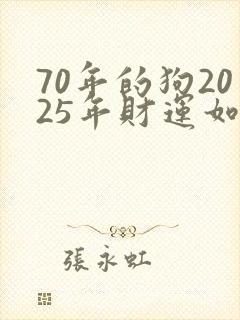 70年的狗20
25年財運如
張永虹